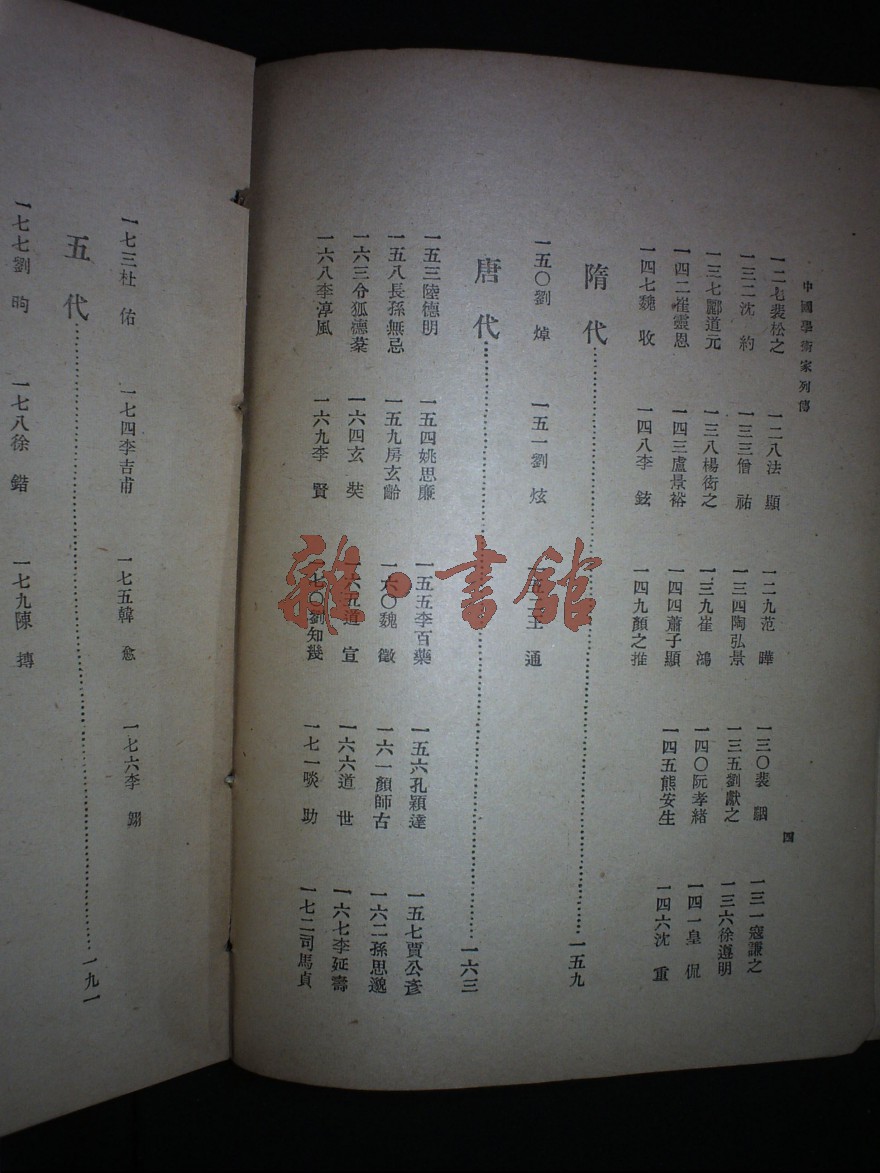 中國學術家列傳
四
一二七裴松之 一二八法顯 一二九范曄 一三〇裴駰 一三一寇謙之
一三二沈約 一三三僧祐 一三四陶弘景 一三五劉獻之 一三六徐遵明
一三七酈道元 一三八楊衒之 一三九崔鴻 一四〇阮孝緒 一四一皇侃
一四二崔靈恩 一四三盧景裕 一四四蕭子顯 一四五熊安生 一四六沈重
一四七魏收 一四八李鉉 一四九顏之推
隋代……一五九
一五〇劉焯 一五一劉炫 一五二王通
唐代……一六三
一五三陸德明 一五四姚思廉 一五五李百藥 一五六孔穎達 一五七賈公彥
一五八長孫無忌 一五九房玄齡 一六〇魏徵 一六一顏師古 一六二孫思邈
一六三令狐德棻 一六四玄奘 一六五道宣 一六六道世 一六七李延壽
一六八李淳風 一六九李賢 一七〇劉知幾 一七一啖助 一七二司馬貞
一七三杜佑 一七四李吉甫 一七五韓愈 一七六李翱
五代……一九一
一七七劉昫 一七八徐鍇 一七九陳摶
雜·書館